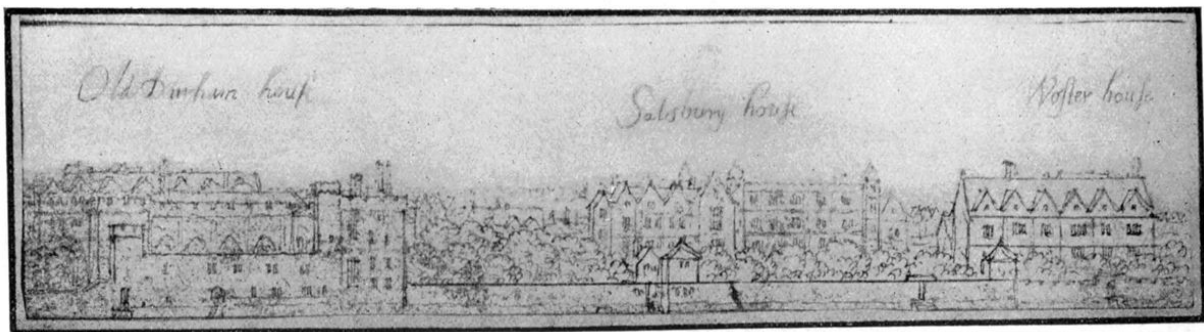 Old Durham house
Salsbury house
Woster house